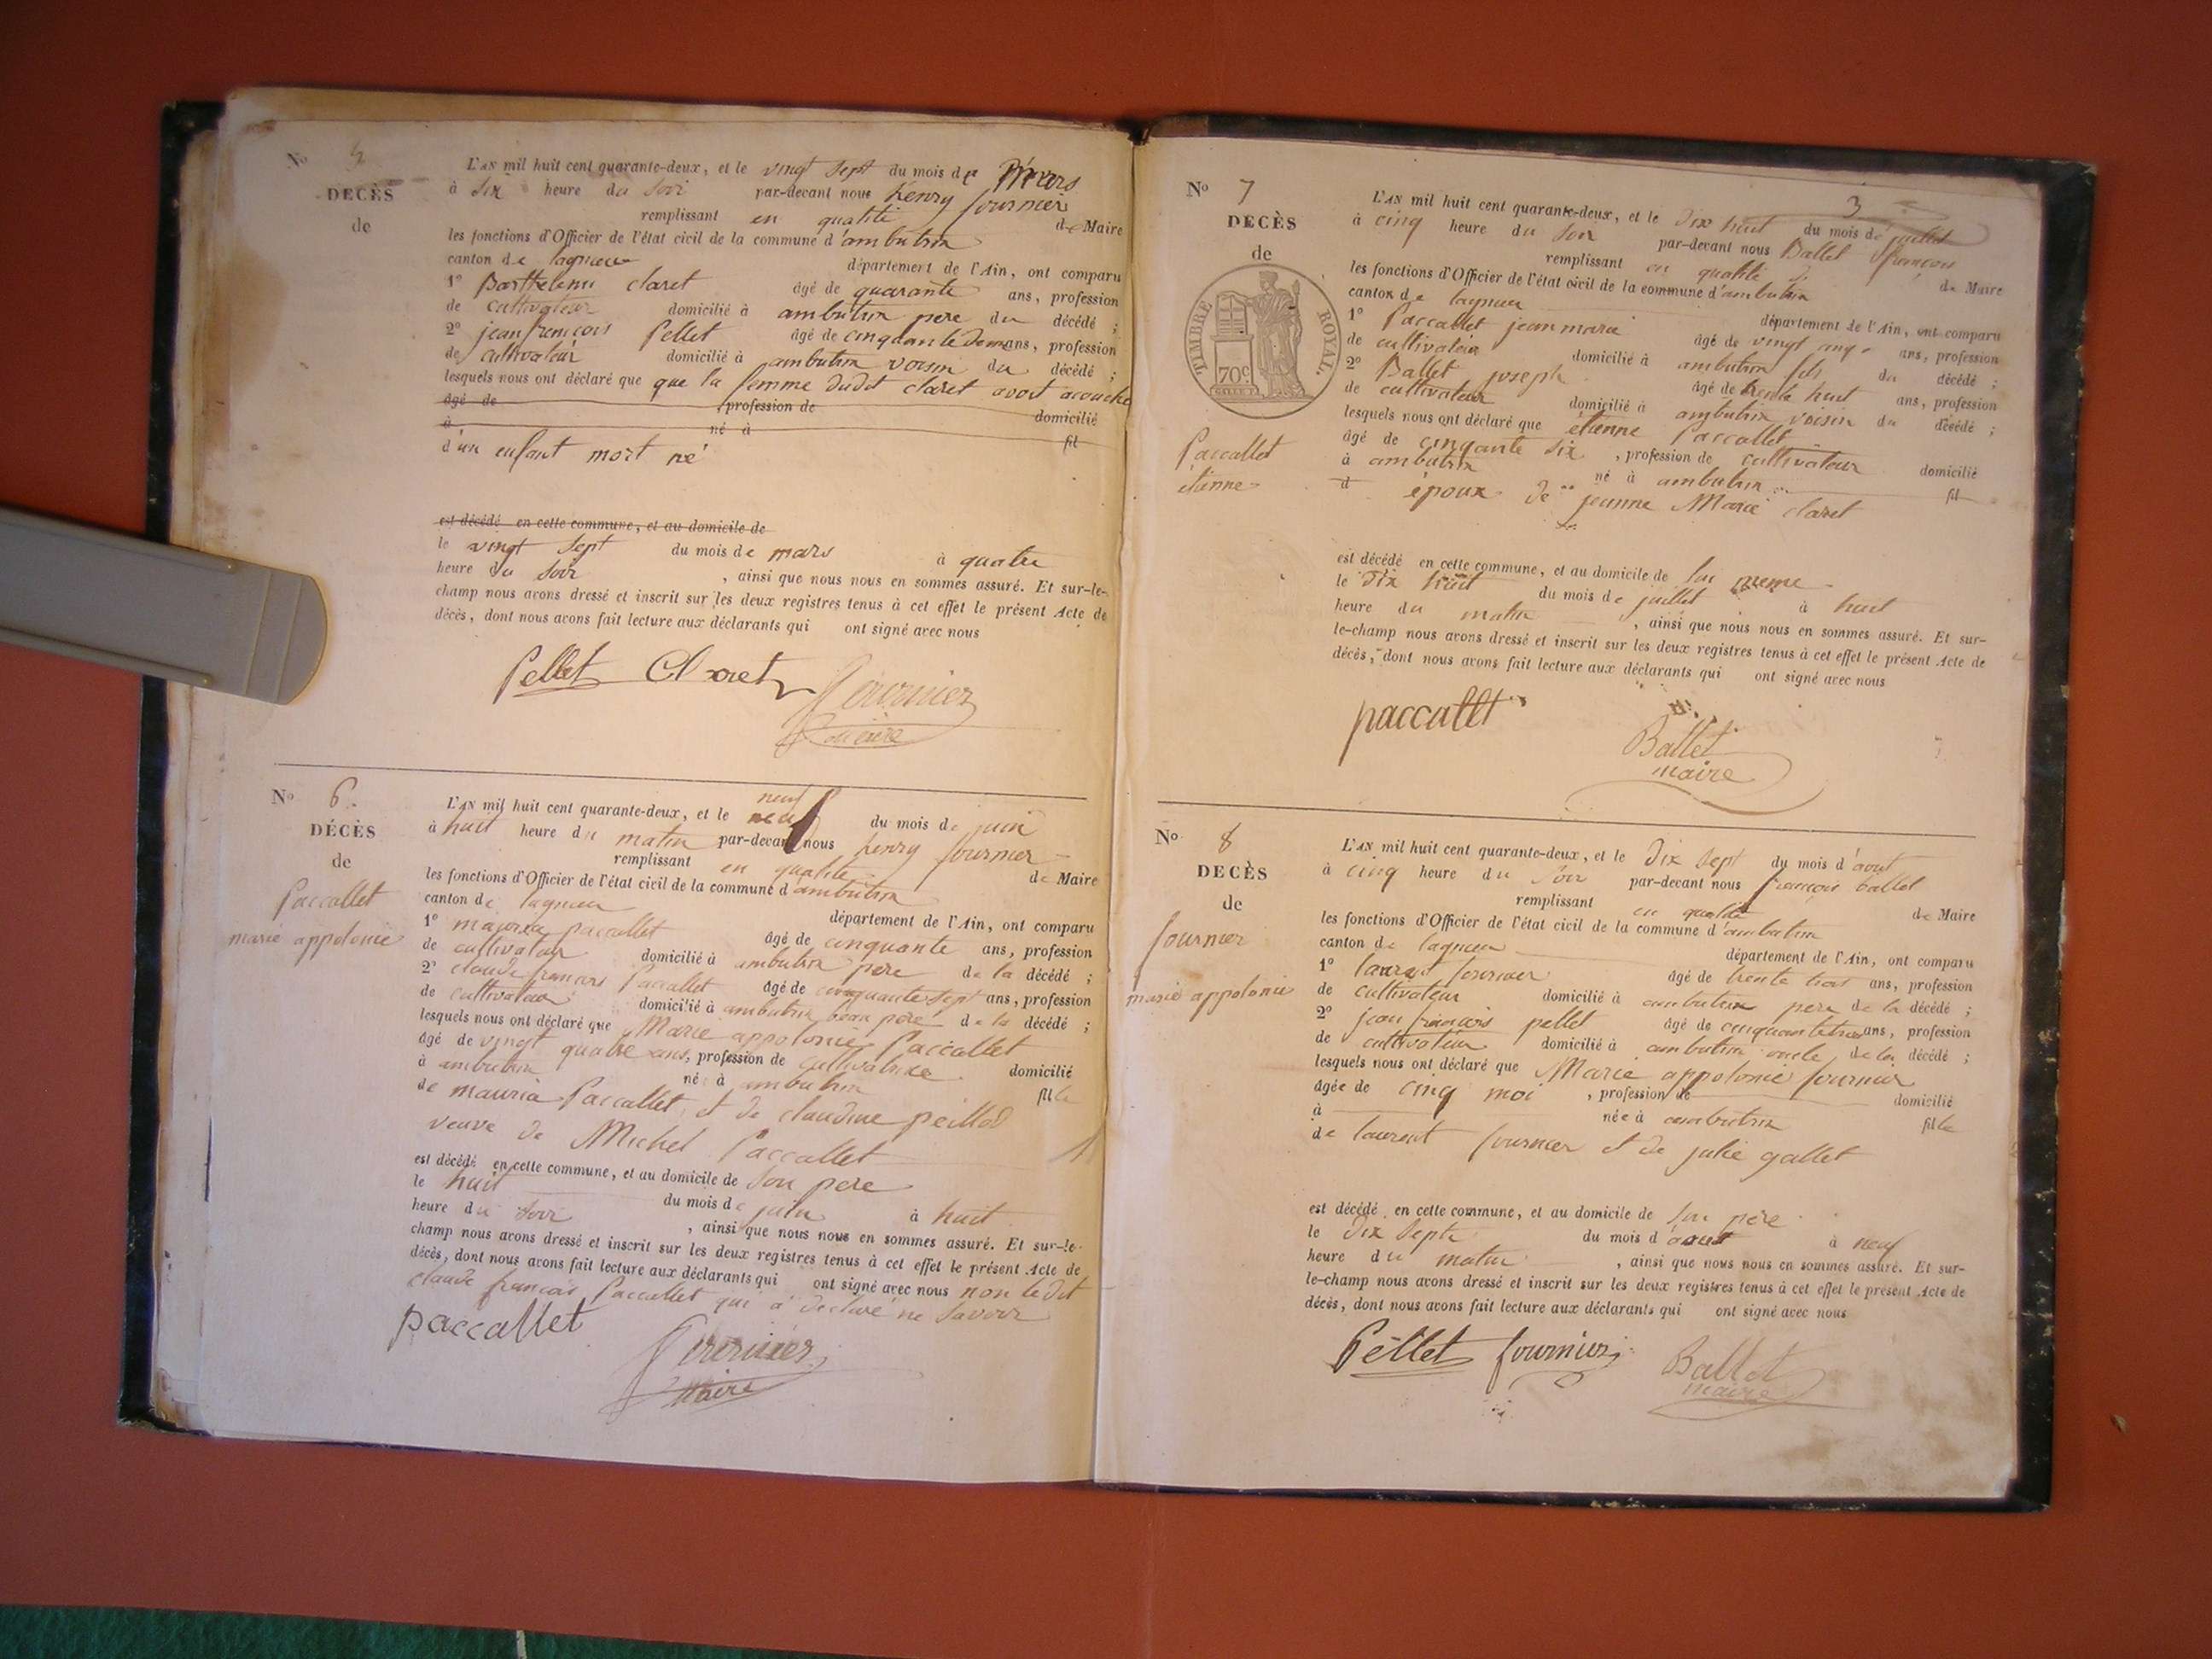 No 5
DECÈS
de
L'AN mil huit cent quarante-deux, et le vingt sept du mois de mars
à six heure du soir par-devant nous henry fournier
remplissant en qualité de Maire
les fonctions d'Officier de l'état civil de la commune d'ambutrix
canton de lagnieu département de l'Ain, ont comparu
1° Barthelemi claret âgé de quarante ans, profession
de cultivateur domicilié à ambutrix pere du décédé ;
2° jean françois Pellet âgé de cinquante ans, profession
de cultivateur domicilié à ambutrix voisin du décédé ;
lesquels nous ont déclaré que que la femme dudit claret avoit acouché
âgé de , profession de domicilié
à né à fil
d'un enfant mort né
est décédé en cette commune, et au domicile de
le vingt sept du mois de mars à quatre
heure du soir , ainsi que nous nous en sommes assuré. Et sur-le-
champ nous avons dressé et inscrit sur les deux registres tenus à cet effet le présent Acte de
décès, dont nous avons fait lecture aux déclarants qui ont signé avec nous
Pellet Claret fournier
maire
No 6.
DÉCÈS
de
Paccallet
marie appolonie
L'AN mil huit cent quarante-deux, et le neuf du mois de juin
à huit heure du matin par-devant nous henry fournier
remplissant en qualité de Maire
les fonctions d'Officier de l'état civil de la commune d'ambutrix
canton de lagnieu département de l'Ain, ont comparu
1° mauria paccallet âgé de cinquante ans, profession
de cultivateur domicilié à ambutrix pere de la décédé ;
2° claude francois Paccallet âgé de cinquante sept ans, profession
de cultivateur domicilié à ambutrix beau pere de la décédé ;
lesquels nous ont déclaré que Marie appolonie Paccallet
âgé de vingt quatre ans, profession de cultivatrice domicilié
à ambutrix né à ambutrix fille
de mauria Paccallet et de claudine peillod
veuve de Michel Paccallet
est décédé en cette commune, et au domicile de son pere
le huit du mois de juin à huit
heure du soir , ainsi que nous nous en sommes assuré. Et sur-le-
champ nous avons dressé et inscrit sur les deux registres tenus à cet effet le présent Acte de
décès, dont nous avons fait lecture aux déclarants qui ont signé avec nous non ledit
claude francois Paccallet qui a declaré ne savoir
paccallet
fournier
Maire
3
No 7
DECÈS
de
TIMBRE ROYAL.
70c
Paccallet
étienne
L'AN mil huit cent quarante-deux, et le dix huit du mois de juillet
à cinq heure du soir par-devant nous Ballet françois
remplissant en qualité de Maire
les fonctions d'Officier de l'état civil de la commune d'ambutrix
canton de lagnieu département de l'Ain, ont comparu
1° Paccallet jean marie âgé de vingt ans, profession
de cultivateur domicilié à ambutrix fils du décédé ;
2° Ballet joseph âgé de trente huit ans, profession
de cultivateur domicilié à ambutrix voisin du décédé ;
lesquels nous ont déclaré que étienne Paccallet
âgé de cinquante six , profession de cultivateur domicilié
à ambutrix né à ambutrix fil
d époux de jeanne Marie claret
est décédé en cette commune, et au domicile de lui meme
le dix huit du mois de juillet à huit
heure du matin , ainsi que nous nous en sommes assuré. Et sur-
le-champ nous avons dressé et inscrit sur les deux registres tenus à cet effet le présent Acte de
décès, dont nous avons fait lecture aux déclarants qui ont signé avec nous
paccallet
Ballet
maire
No 8
DECÈS
de
fournier
marie appolonie
L'AN mil huit cent quarante-deux, et le dix sept du mois d'aout
à cinq heure du soir par-devant nous françois ballet
remplissant en qualité de Maire
les fonctions d'Officier de l'état civil de la commune d'ambutrix
canton de lagnieu département de l'Ain, ont comparu
1° laurent fournier âgé de trente trois ans, profession
de cultivateur domicilié à ambutrix pere de la décédé ;
2° jean françois pellet âgé de ans, profession
de cultivateur domicilié à ambutrix oncle de la décédé ;
lesquels nous ont déclaré que Marie appolonie fournier
âgée de cinq moi , profession de domicilié
à née à ambutrix fille
de laurent fournier et de julie gallet
est décédé en cette commune, et au domicile de son père
le dix septe du mois d'aout à neuf
heure du matin , ainsi que nous nous en sommes assuré. Et sur-
le-champ nous avons dressé et inscrit sur les deux registres tenus à cet effet le présent Acte de
décès, dont nous avons fait lecture aux déclarants qui ont signé avec nous
Pellet fournier Ballet
maire